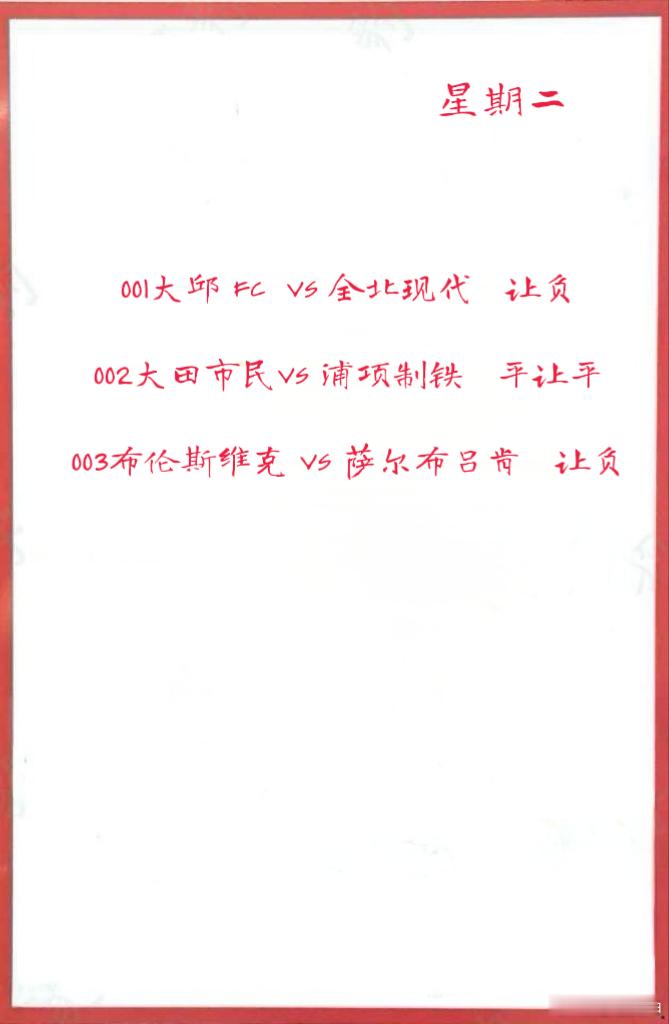 星期二
001大邱 FC VS 全北现代 让负
002大田市民VS 浦项制铁 平让平
003布伦斯维克 VS 萨尔布吕肯 让负